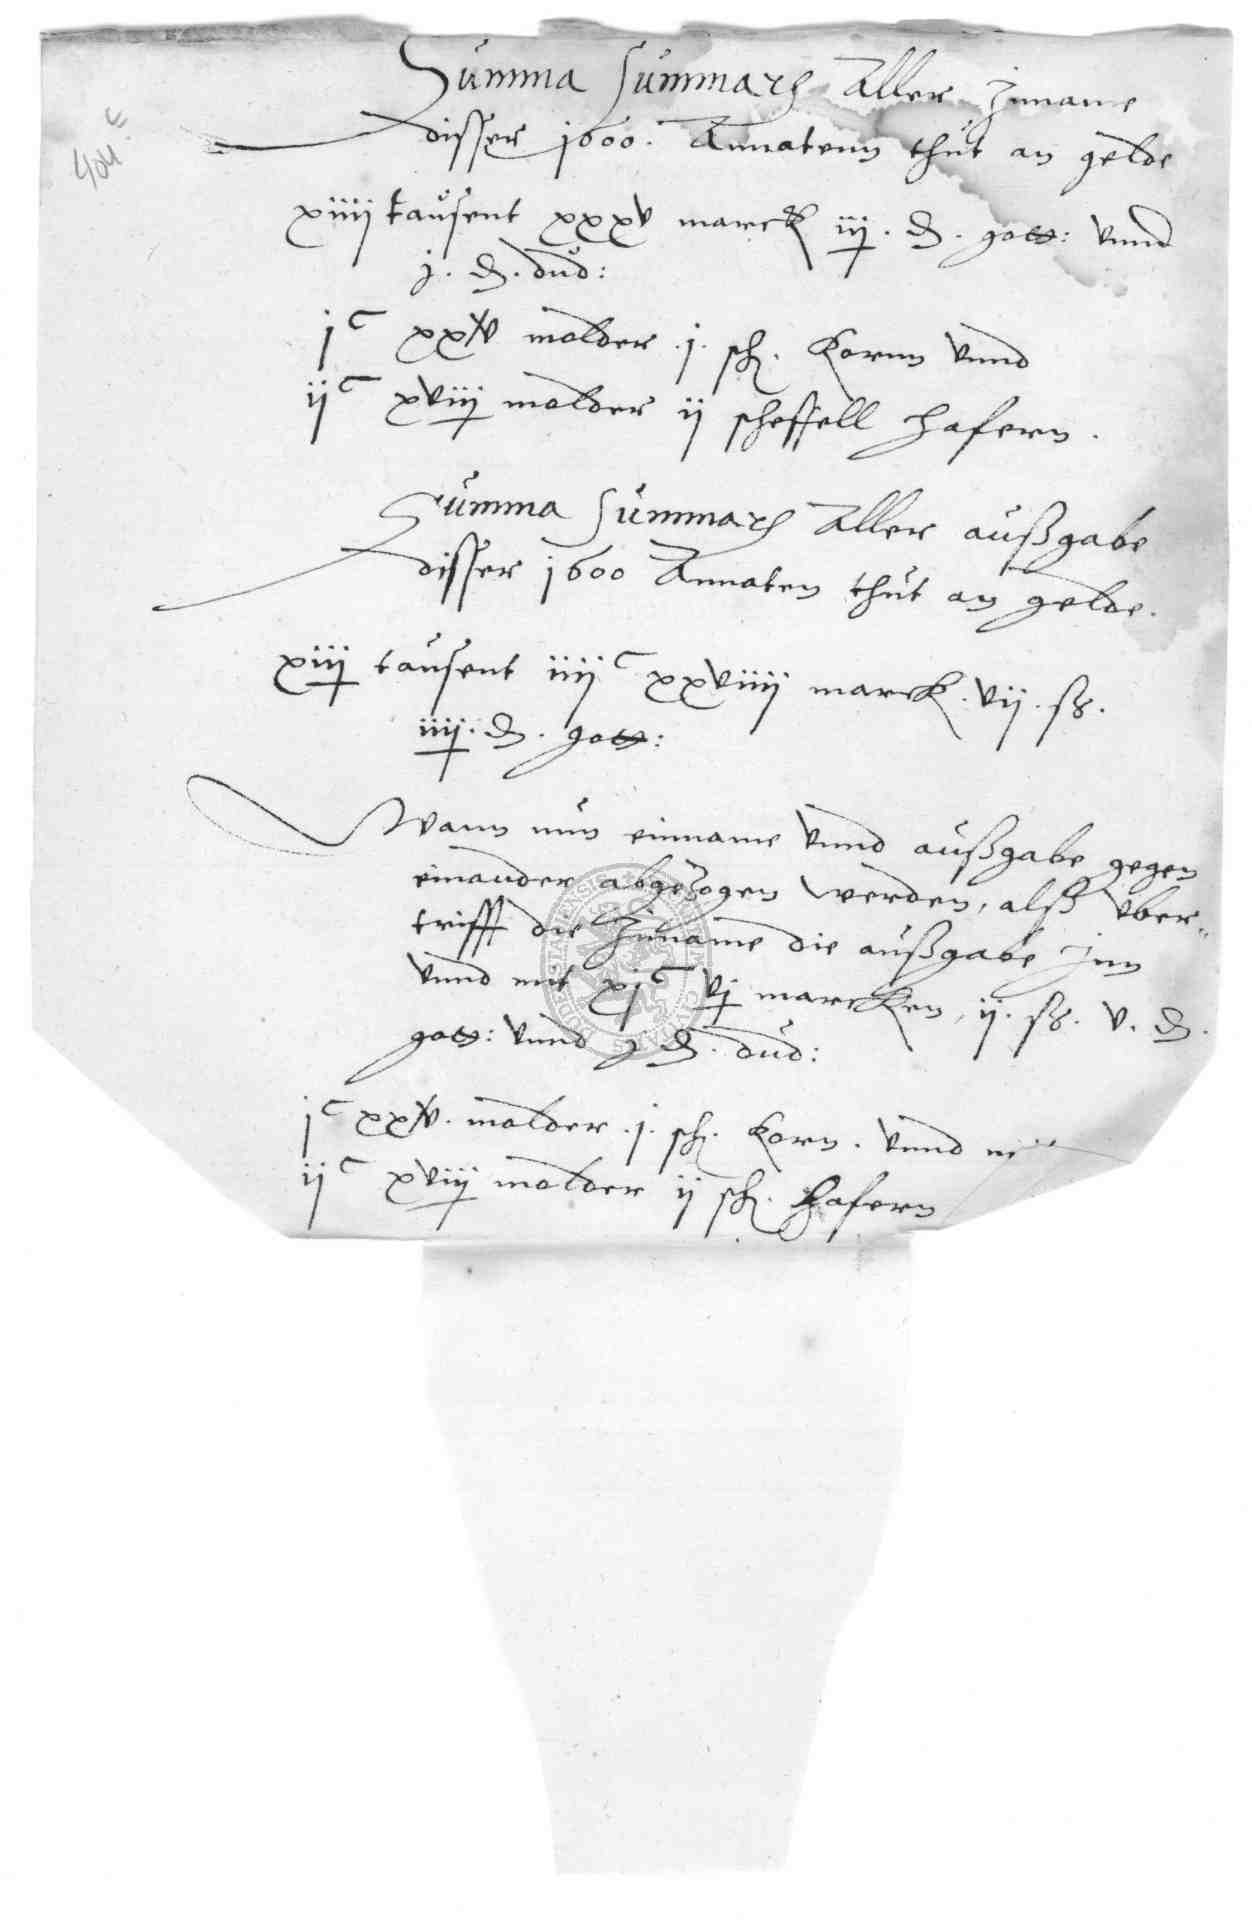 Summa Summarum Aller Inname
disser 1600. Annatenn thut an gelde
xiiij tausent xxxv marck iij. d. gott: vnnd
j. d. dud:
j c xxxv molder .j. sch. Kornn vnnd
ij c xviij molder ij scheffell hafern.
Summa Summarum Aller außgabe
disser 1600 Annaten thut an gelde.
xiij tausent iiij c xxviiij marck. vij. ß.
iiij. d. gott:
Wann nun einname vnnd außgabe gegen
einander abgezogen werden, alß vber-
trifft die Inname die außgabe Inn
vnnd mit vj marcken, ij. ß. v. d.
gott: vnnd j d. dud:
j c molder .j. sch. Korn. vnnd
ij c xviij molder ij sch. hafern
404 c